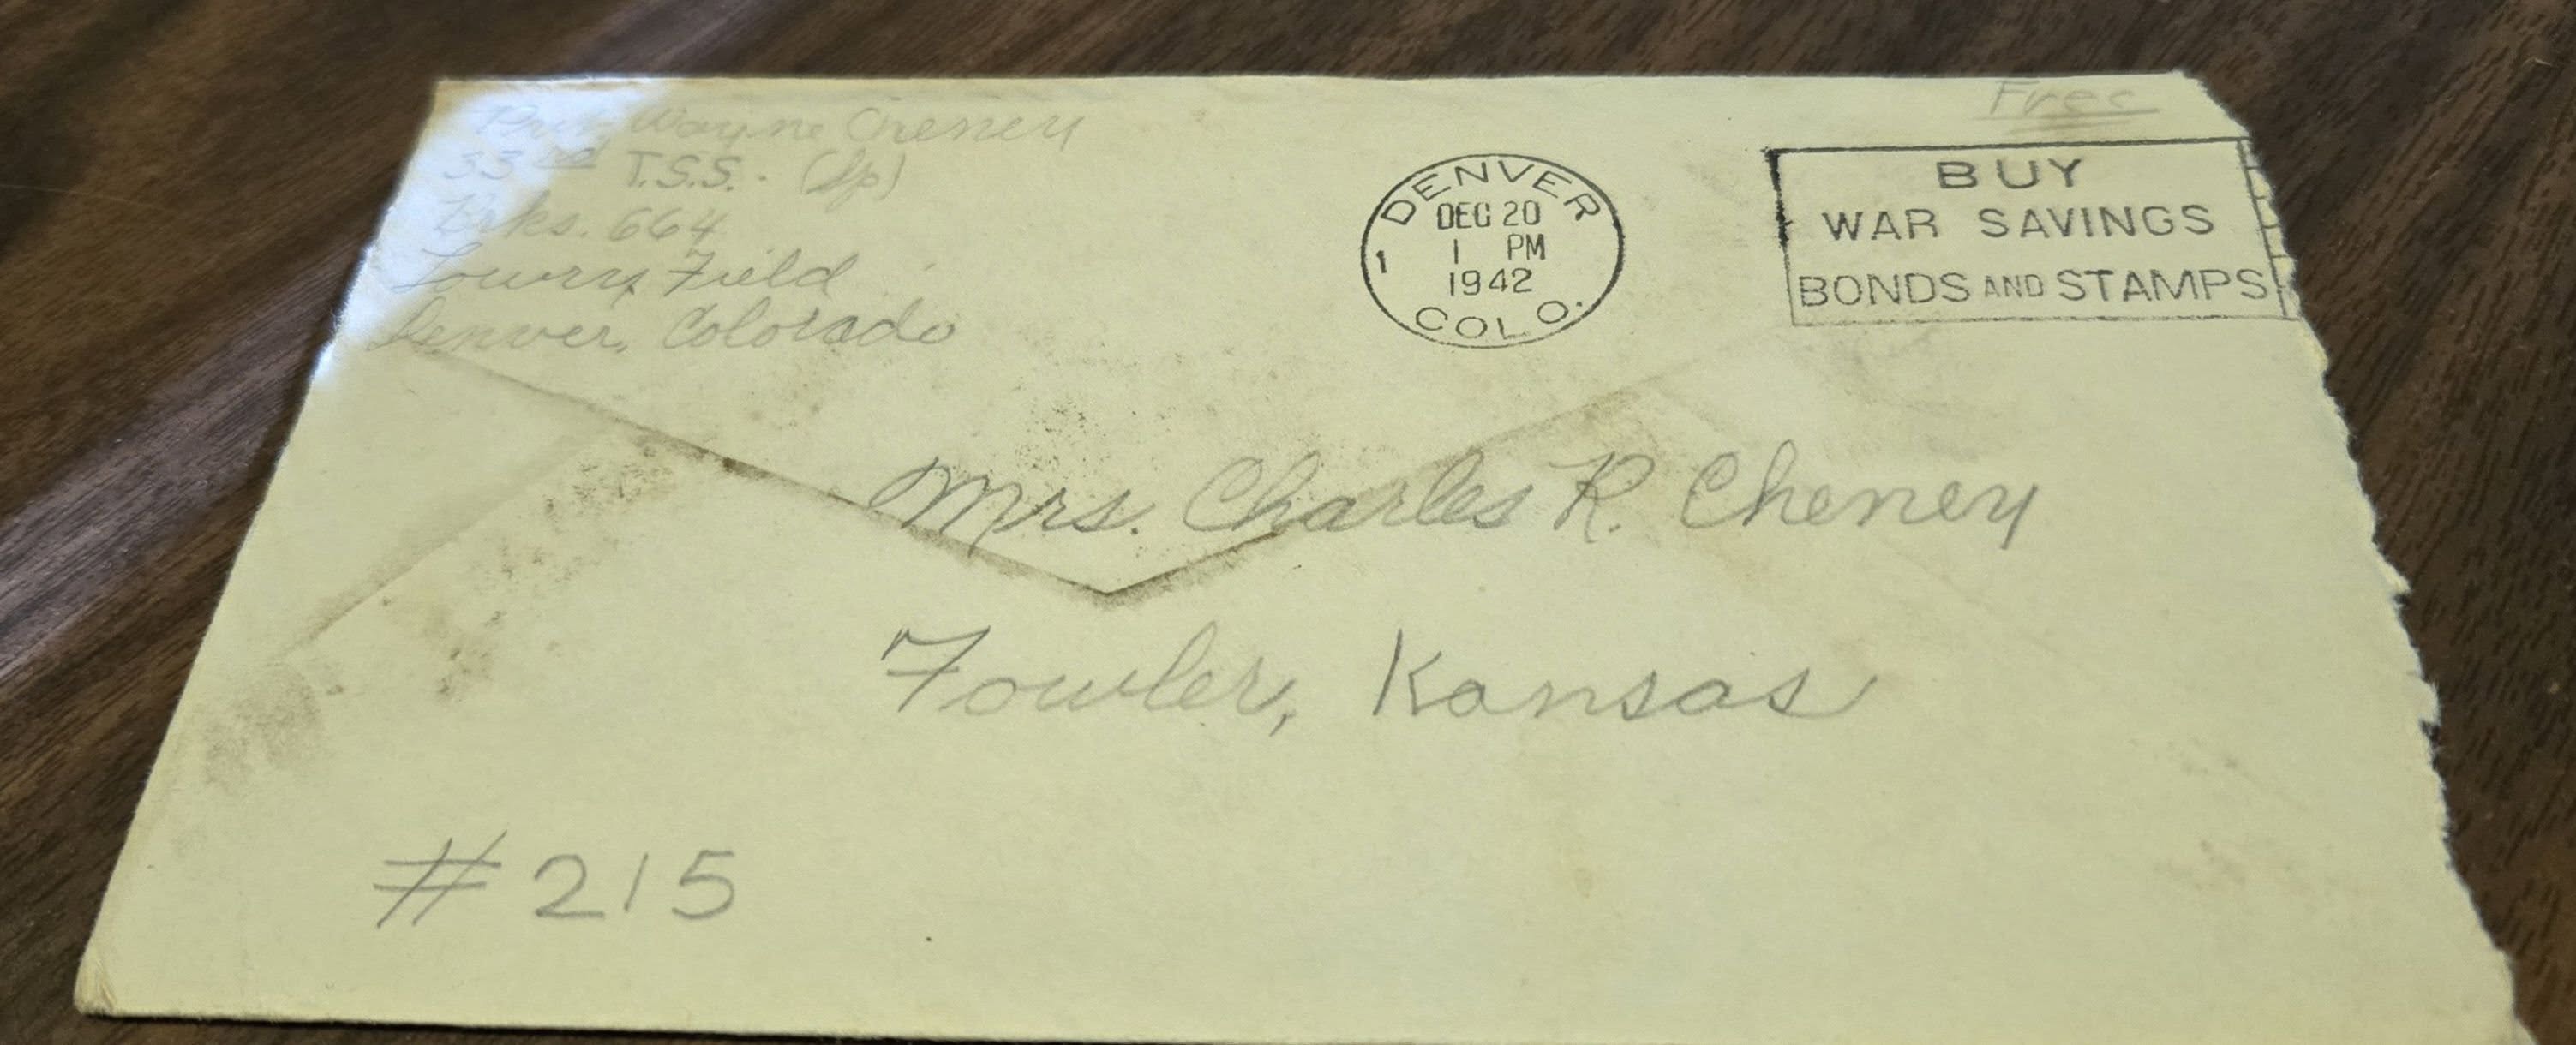 Pvt. Wayne Cheney
33rd T.S.S. (Sp)
Brks. 664
Lowry Field
Denver, Colorado
Free
DENVER
DEC 20
1 PM
1942
COLO.
1
BUY
WAR SAVINGS
BONDS AND STAMPS
Mrs. Charles R. Cheney
Fowler, Kansas
#215